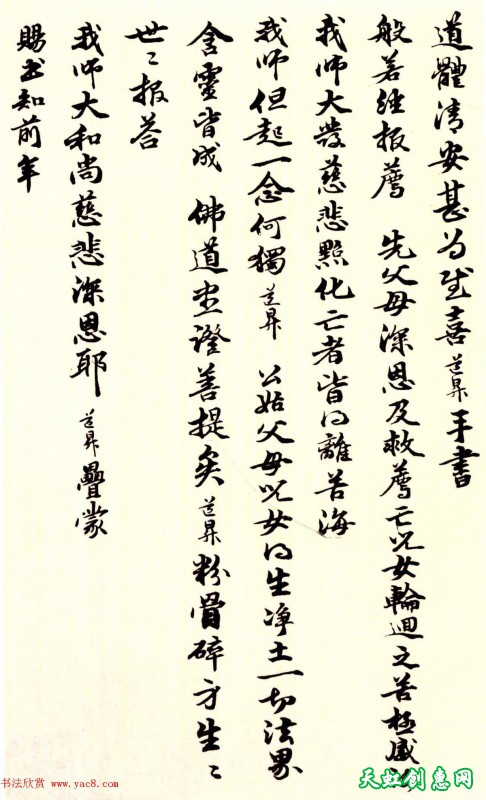 道體清安甚為至喜道昇手書
般若經報薦 先父母深恩及救薦亡兒女輪迴之苦極感
我師大發慈悲點化亡者皆得離苦海
我師但起一念何獨道昇 公姑父母兒女得生淨土一切法界
含靈皆成 佛道宜證菩提矣道昇粉骨碎身生〻
世〻報荅
我師大和尚慈悲深恩耶道昇疊蒙
賜書知前年
书法欣赏 www.yac8.com
天虹创惠网